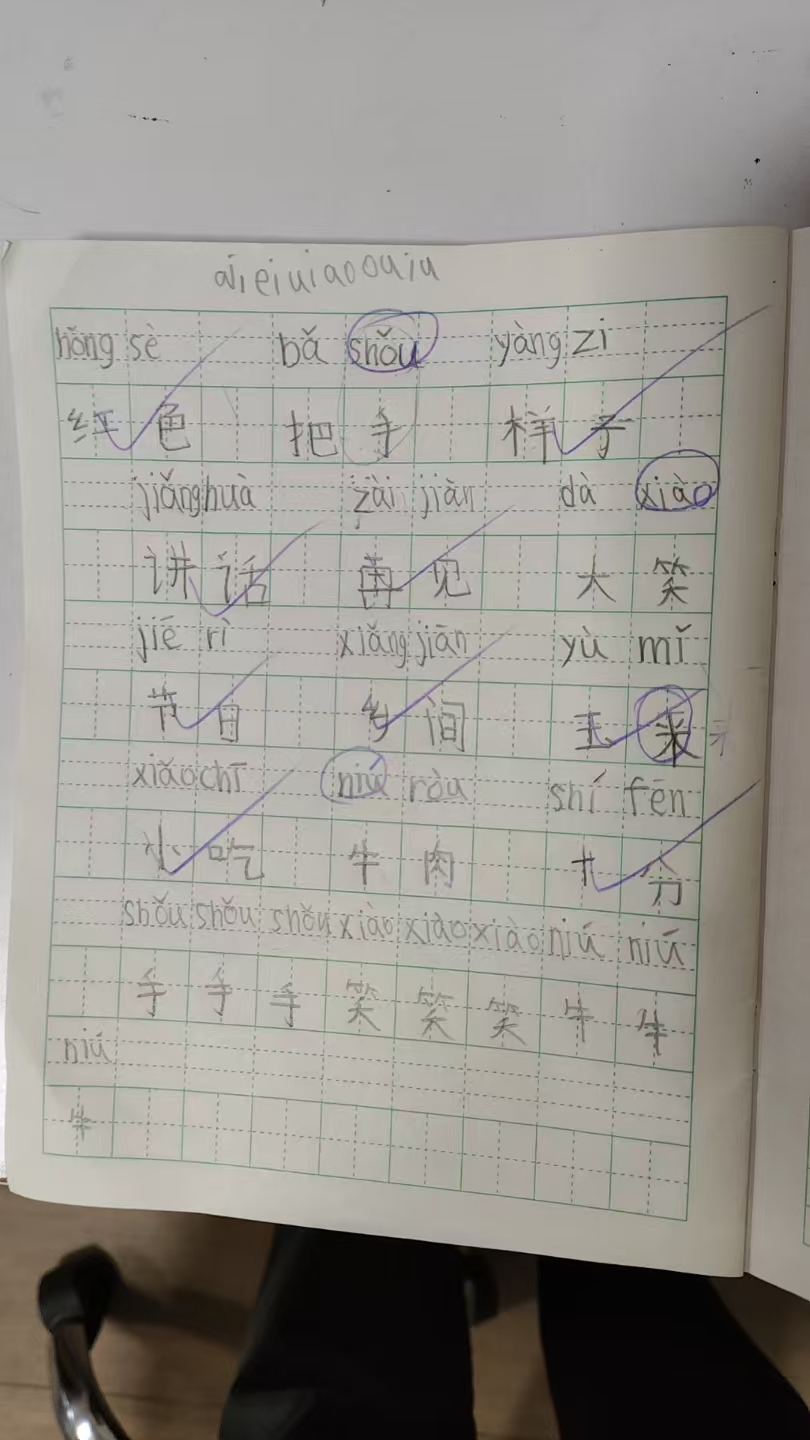 ai ei ui ao ou iu
hǒng sè bǎ shǒu yàng zi
红色 把手 样子
jiǎng huà zài jiàn dà xiào
讲话 再见 大笑
jiē rì xiǎng jiān yù mǐ
节日 乡间 玉米
xiǎo chī niú ròu shí fēn
小吃 牛肉 十分
shǒu shǒu shǒu xiào xiào xiào niú niú
手 手 手 笑 笑 笑 牛 牛
niú
牛